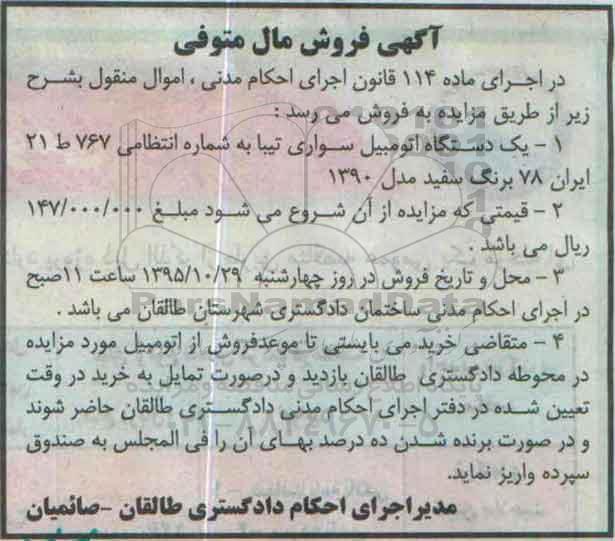 آگهی فروش مال متوفی
در اجرای ماده ۱۱۴ قانون اجرای احکام مدنی ، اموال منقول بشرح
زیر از طریق مزایده به فروش می رسد :
۱ – یک دستگاه اتومبیل سواری تیبا به شماره انتظامی ۷۶۷ ط ۲۱
ایران ۷۸ برنگ سفید مدل ۱۳۹۰
۲ – قیمتی که مزایده از آن شروع می شود مبلغ ۱۴۷/۰۰۰/۰۰۰
ریال می باشد .
۳ – محل و تاریخ فروش در روز چهارشنبه ۱۳۹۵/۱۰/۲۹ ساعت ۱۱صبح
در اجرای احکام مدنی ساختمان دادگستری شهرستان طالقان می باشد .
ParsNamadData
۴ – متقاضی خرید می بایستی تا موعدفروش از اتومبیل مورد مزایده
در محوطه دادگستری طالقان بازدید و درصورت تمایل به خرید در وقت
تعیین شده در دفتر اجرای احکام مدنی دادگستری طالقان حاضر شوند
و در صورت برنده شدن ده درصد بهای آن را فی المجلس به صندوق
سپرده واریز نماید.
مدیراجرای احکام دادگستری طالقان –صائمیان